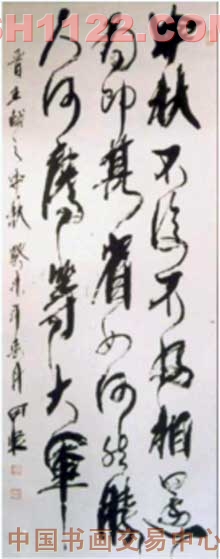 SH1122.COM
中秋不復不得相還
為即甚省如何然勝
人何慶等大軍
晉王獻之中秋 癸未年
中国书画交易中心